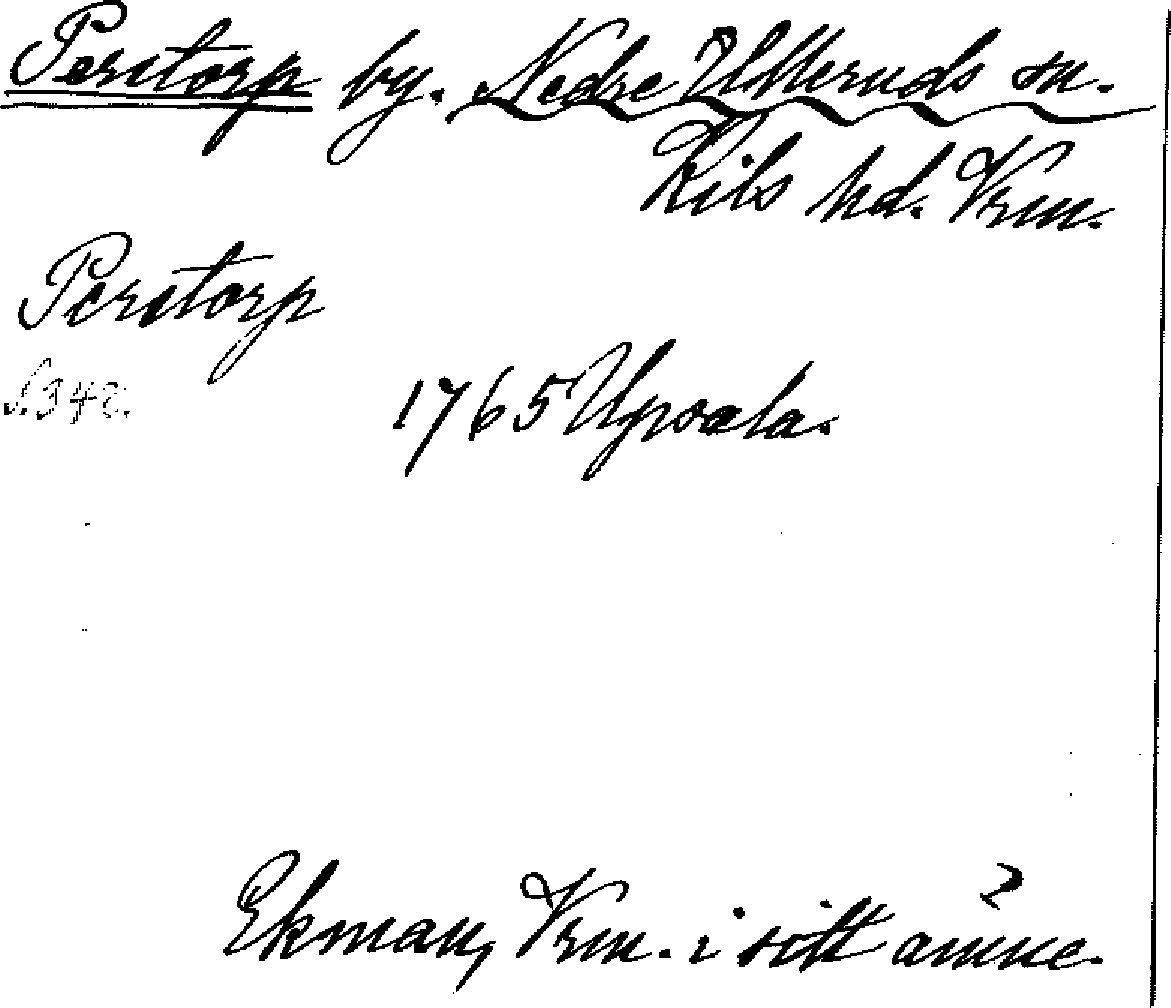 Perstorp by. Nedre Ulleruds sn.
Kils hd. Vrm.
Perstorp
S. 342.
1765 Upsala.
Ekman, Vrm. i sitt ämne.